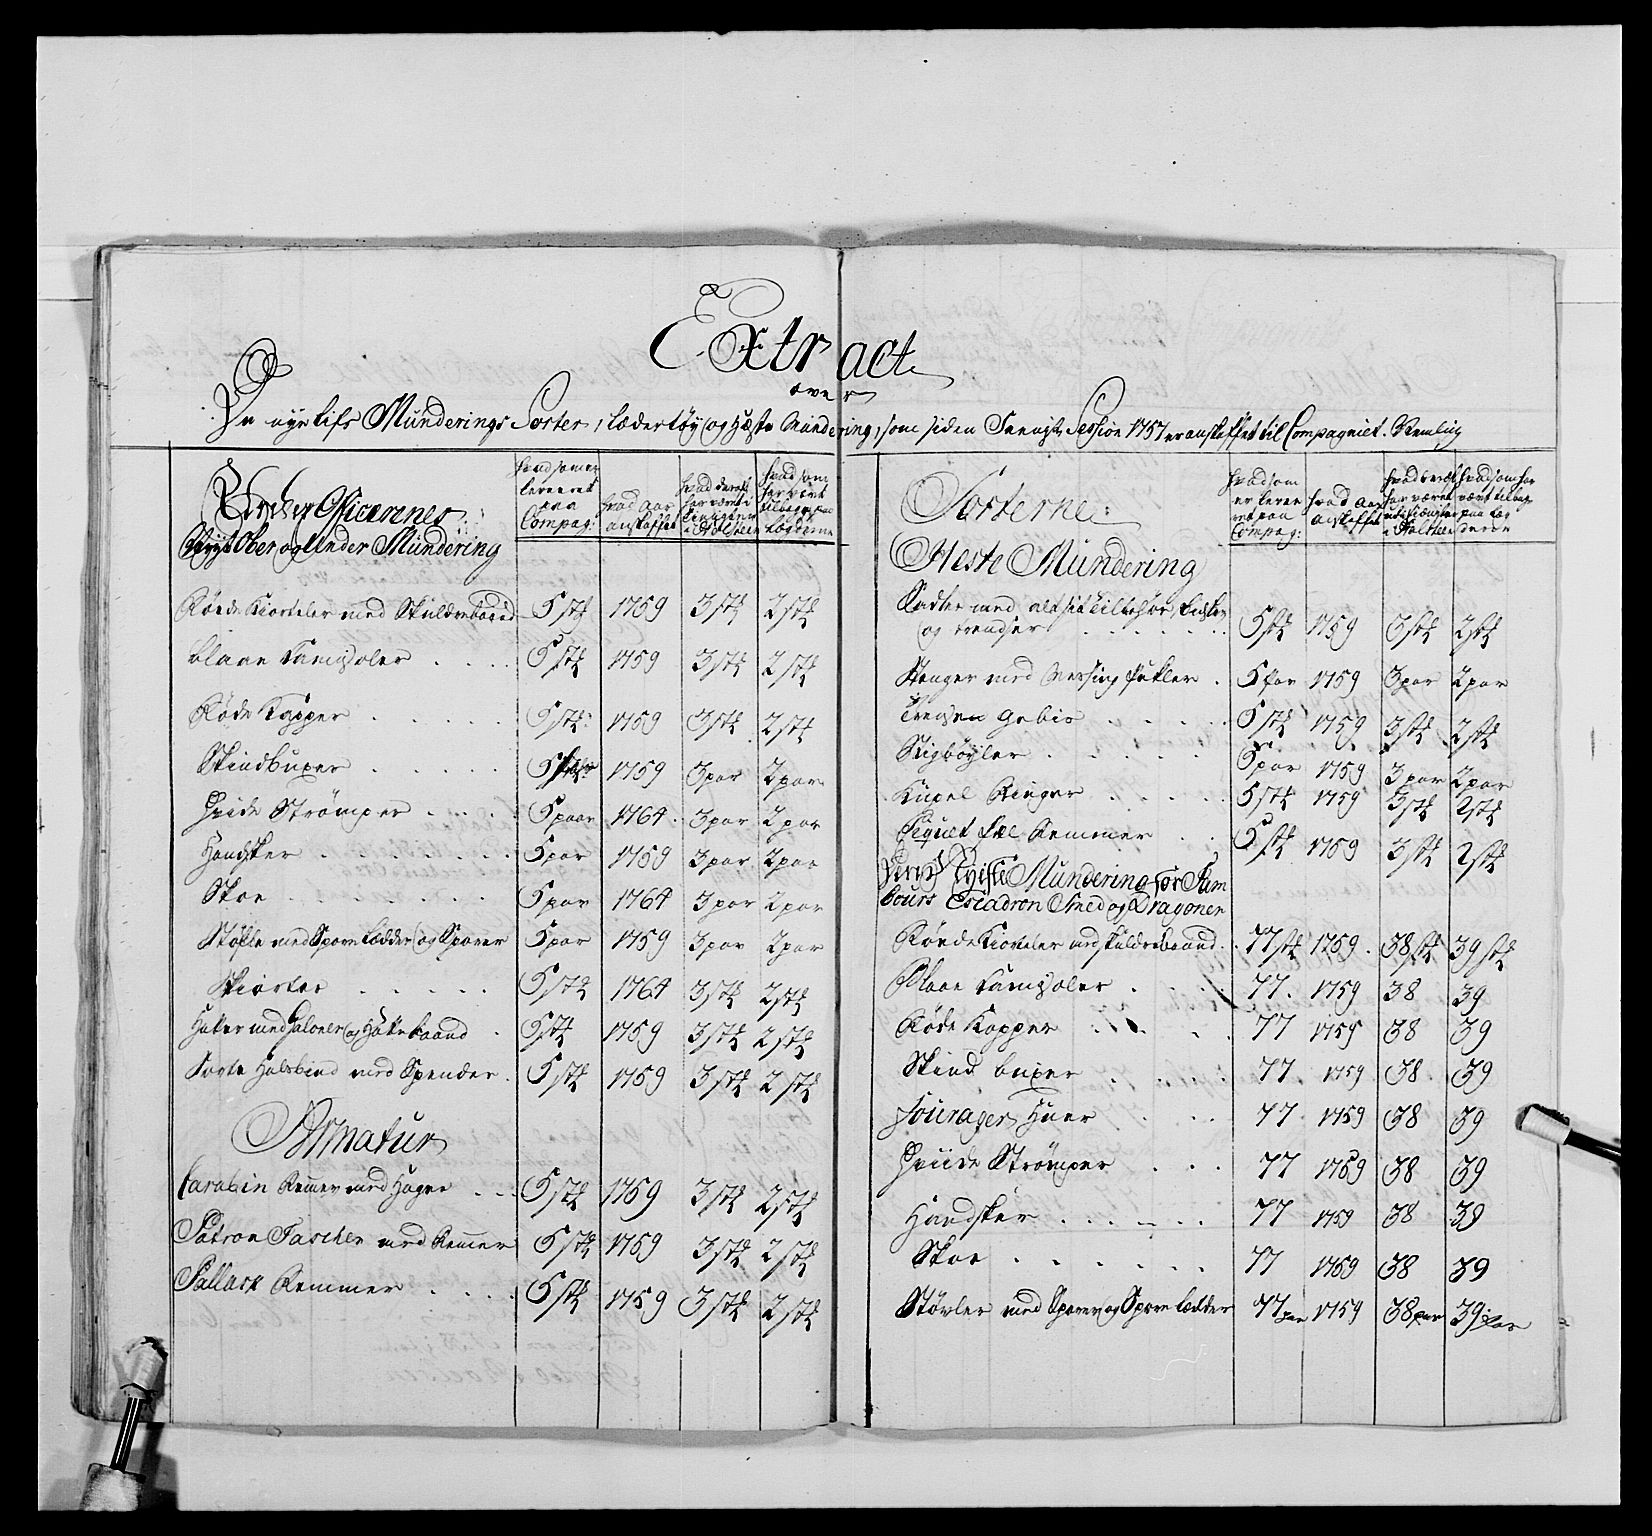 Extract
over
De nye lifs Munderings Sorter, Lædertøy og Hæste Mundering, som siden Seeniste Session 1757 er anskaffet til Compagniet. Nemlig
Under Officerernes
Nyt Ober og Under Mundering
hvad som er leveret paa Compag:
hvad aar anskaffet
hvad deraf har været i Holsteen
hvad som har vært tilbage paa Lægderne
Røde Kiorteler med Skulderbaand 5 stk 1759 3 stk 2 stk
blaae Camisoler . . . . 5 stk 1759 3 stk 2 stk
Røde Kapper . . . . . 5 stk: 1759 3 stk 2 stk
Skindbuxer . . . . . 5 1759 3 par 2 par
Hvide Strømper . . . . 5 paar 1764 . 3 par 2 par
Handsker . . . . . . 5 par 1759 3 par 2 par
Skoe . . . . . . . 5 par 1764 3 par 2 par
Støfle med Spore Lædder og Sporer 5 par 1759 3 par 2 par
Skiorter . . . . . 5 stk 1764 3 stk 2 stk
Hatter med Galoner og Hattebaand . 5 stk 1759 3 stk 2 stk
Sorte Halsbind med Spender . 5 stk 1759 3 stk 2 stk
Armatur
Carabin Remmer med Hager . . . 5 stk 1759 3 stk 2 stk
Patron Tascher med Remmer 5 stk 1759 3 stk 2 stk
Pallask Remmer . . . . 5 stk 1759 3 stk 2 stk
Sorterne
hvad som er leveret paa Compag:
hvad aar anskaffet
hvad deraf har været udi i Holsteen
hvad som har vært tilbage paa Lægderne
Heste Mundering
Sadler med alt sit tilbehør,
og trendser . . . . . . 5 stk 1759 3 stk 2 stk
Stenger med Messing Pukler . 5 par 1759 3 par 2 par
Trensen Gebis . . . . . 5 stk 1759 3 stk 2 stk
Stigbøyler . . . . . . 5 par 1759 3 par 2 par
Kupel Ringer . . . . . 5 stk 1759 3 stk 2 stk
Piquet Pæl Remmer . . 5 stk 1759 3 stk 2 stk
Mundering for Tam
bours Escadron Smed og Dragoner
Røede Kiorteler med Skulderbaand . 77 stk 1759 . 38 stk 39 stk
Blaae Camisoler . . . . 77 . 1759 38 39
Røde Kapper . . . . 77 1759 38 39
Skind buxer . . . . . 77 . 1759 38 . 39
Fourager Huer . . . 77 . 1759 38 39
Hviide Strømper . . . 77 1759 38 39
Handsker . . . . . . 77 1759 38 39
Skoe . . . . . . 77 1759 38 39
Støvler med Sporer og Spore Lædder 77 par 1759 38 par 39 par